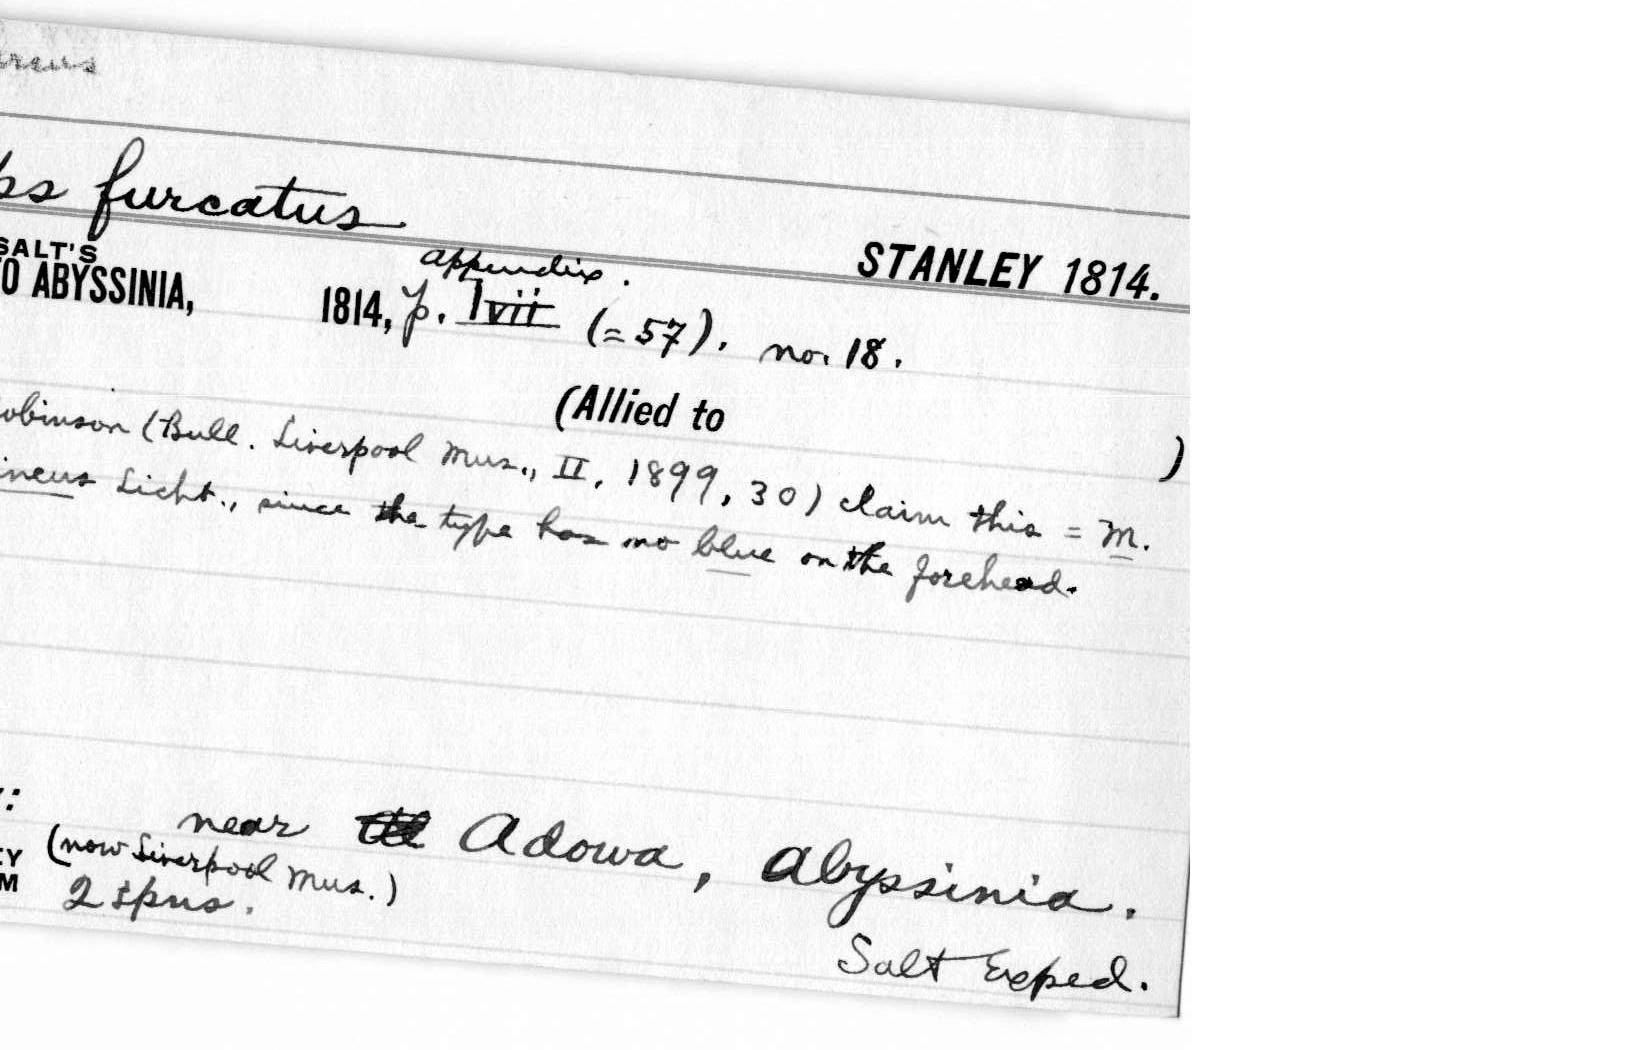 ps furcatus
SALT'S
TO ABYSSINIA, 1814, p. lvii (=57). no. 18.
appendix.
STANLEY 1814.
(Allied to )
obinson (Bull. Liverpool Mus., II, 1899, 30) claim this = M.
ineus Licht., since the type has no blue on the forehead.
: near Adowa, Abyssinia.
EY (now Liverpool Mus.)
M 2 spns.
Salt Exped.